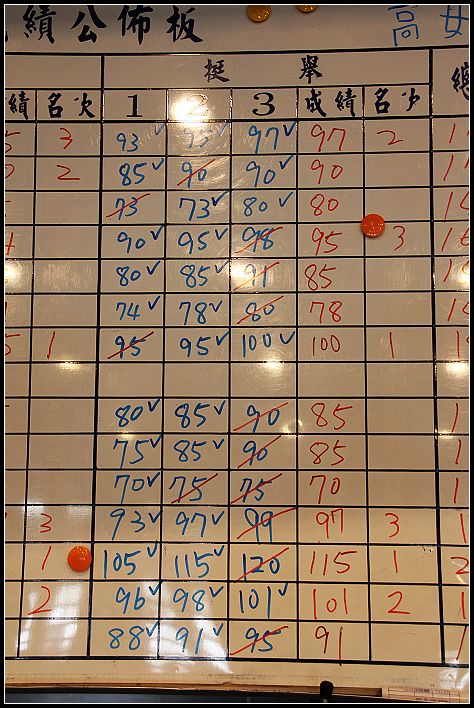 績公佈板 高女
挺 舉
績 名次 1 2 3 成績 名次 總
3 93✓ 95✓ 97✓ 97 2 1
2 85✓ 90 90✓ 90 1
73 73✓ 80✓ 80 1
90✓ 95✓ 98 95 3 1
80✓ 85✓ 91 85 1
74✓ 78✓ 80 78 1
1 95 95✓ 100✓ 100 1 1
80✓ 85✓ 90 85 1
75✓ 85✓ 90 85 1
70✓ 75 75 70 1
3 93✓ 97✓ 99 97 3 1
1 105✓ 115✓ 120 115 1 2
2 96✓ 98✓ 101✓ 101 2 1
88✓ 91✓ 95 91 1